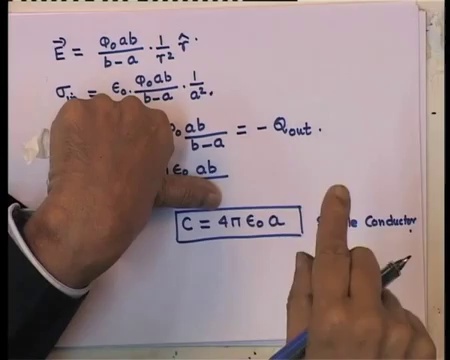 E⃗ = φ₀ab/(b-a) · 1/r² r̂.
σin = ε₀. φ₀ab/(b-a) · 1/a².
ab/(b-a) = - Qout.
ε₀ ab
C = 4π ε₀ a
Conductor